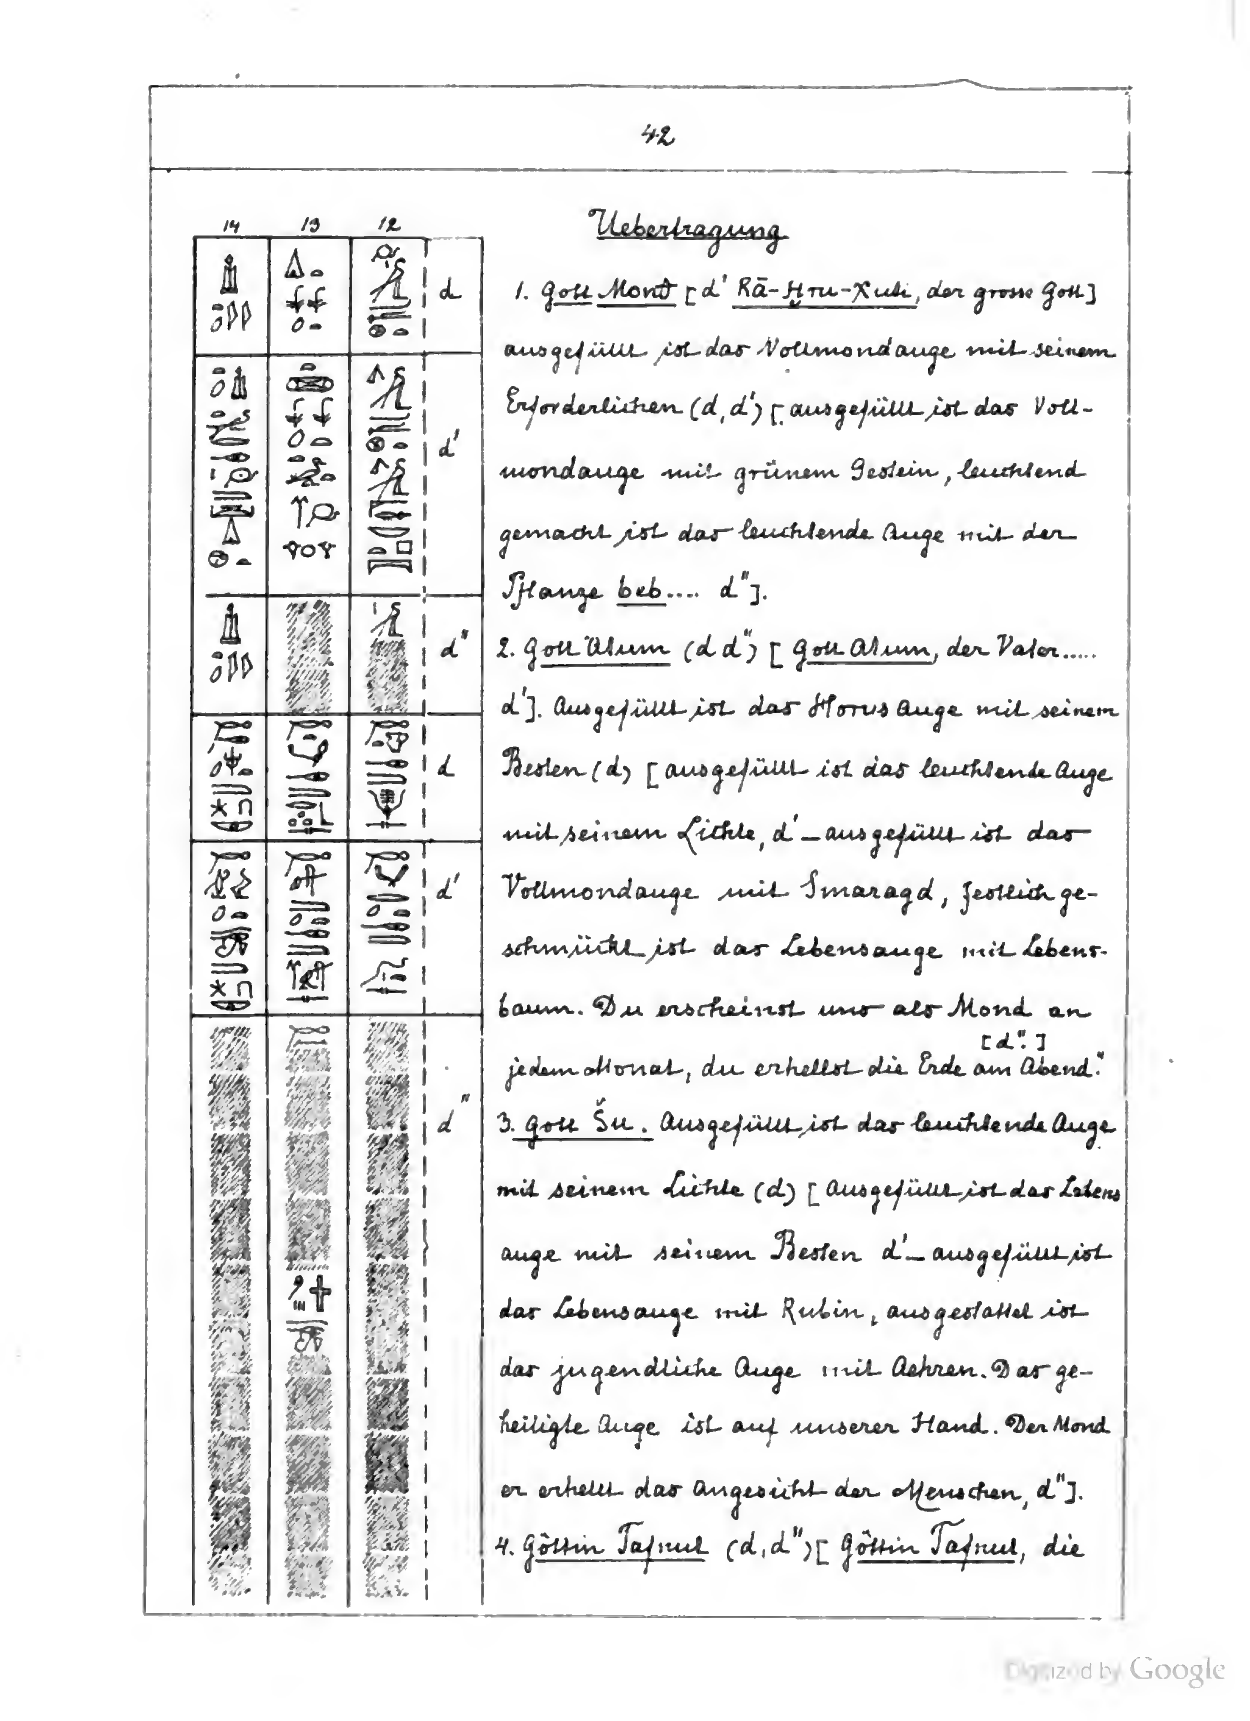 42
14 13 12
d
d'
d"
d
d'
d"
Uebertragung
1. Gott Mond [d' Rā-Ḥru-Xuti, der grosse Gott]
ausgefüllt ist das Vollmondauge mit seinem
Erforderlichen (d, d') [ausgefüllt ist das Voll-
mondauge mit grünem Gestein, leuchtend
gemacht ist das leuchtende Auge mit der
Pflanze beb.... d"].
2. Gott Atum (d d") [Gott Atum, der Vater.....
d']. Ausgefüllt ist das Horus Auge mit seinem
Besten (d) [ausgefüllt ist das leuchtende Auge
mit seinem Lichte, d' — ausgefüllt ist das
Vollmondauge mit Smaragd, festlich ge-
schmückt ist das Lebensauge mit Lebens-
baum. Du erscheinst uns als Mond an
[d".]
jedem Monat, du erhellst die Erde am Abend."
3. Gott Šu. Ausgefüllt ist das leuchtende Auge
mit seinem Lichte (d) [Ausgefüllt ist das Lebens
auge mit seinem Besten d' — ausgefüllt ist
das Lebensauge mit Rubin, ausgestattet ist
das jugendliche Auge mit Aehren. Das ge-
heiligte Auge ist auf unserer Hand. Der Mond
er erhellt das Angesicht der Menschen, d"].
4. Göttin Tafnut (d, d") [Göttin Tafnut, die
Digitized by Google